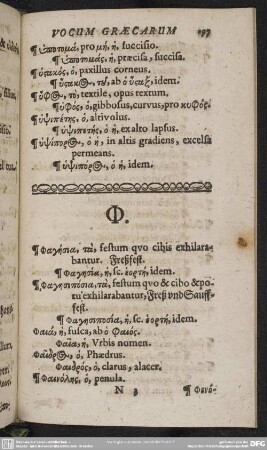 VOCUM GRÆCARUM 197
¶ ὑποτομὰ, pro μὴ, ἡ, succisio.
¶ ὑποτομὰς, ἡ, præcisa, succisa.
¶ ὑσακὸς, ὁ, paxillus corneus.
idem.
textile, opus textum.
¶ ὑφὸς, ὁ, gibbosus, curvus, pro κυφός.
¶ ὑψιπέτης, ὁ, altivolus.
¶ ὑψιπετὴς, ὁ ἡ, ex alto lapsus.
ὁ ἡ, in altis gradiens, excelsa
permeans.
ὁ ἡ, idem.
Φ.
¶ Φαγήσια, τὰ, festum qvo cibis exhilara-
bantur. Freßfest.
¶ Φαγησία, ἡ, sc. ἑορτὴ, idem.
¶ Φαγησιπόσια, τὰ, festum qvo & cibo & po-
tu exhilarabantur, Freß vnd Sauff-
fest.
¶ Φαγησιποσία, ἡ, sc. ἑορτὴ, idem.
Φαιὰ, ἡ, fusca, ab ὁ Φαιός.
Φαία, ἡ, Vrbis nomen.
ὁ, Phædrus.
Φαιδρὸς, ὁ, clarus, alacer.
¶ Φαινόλης, ὁ, penula.
N 3 ¶ Φανό-